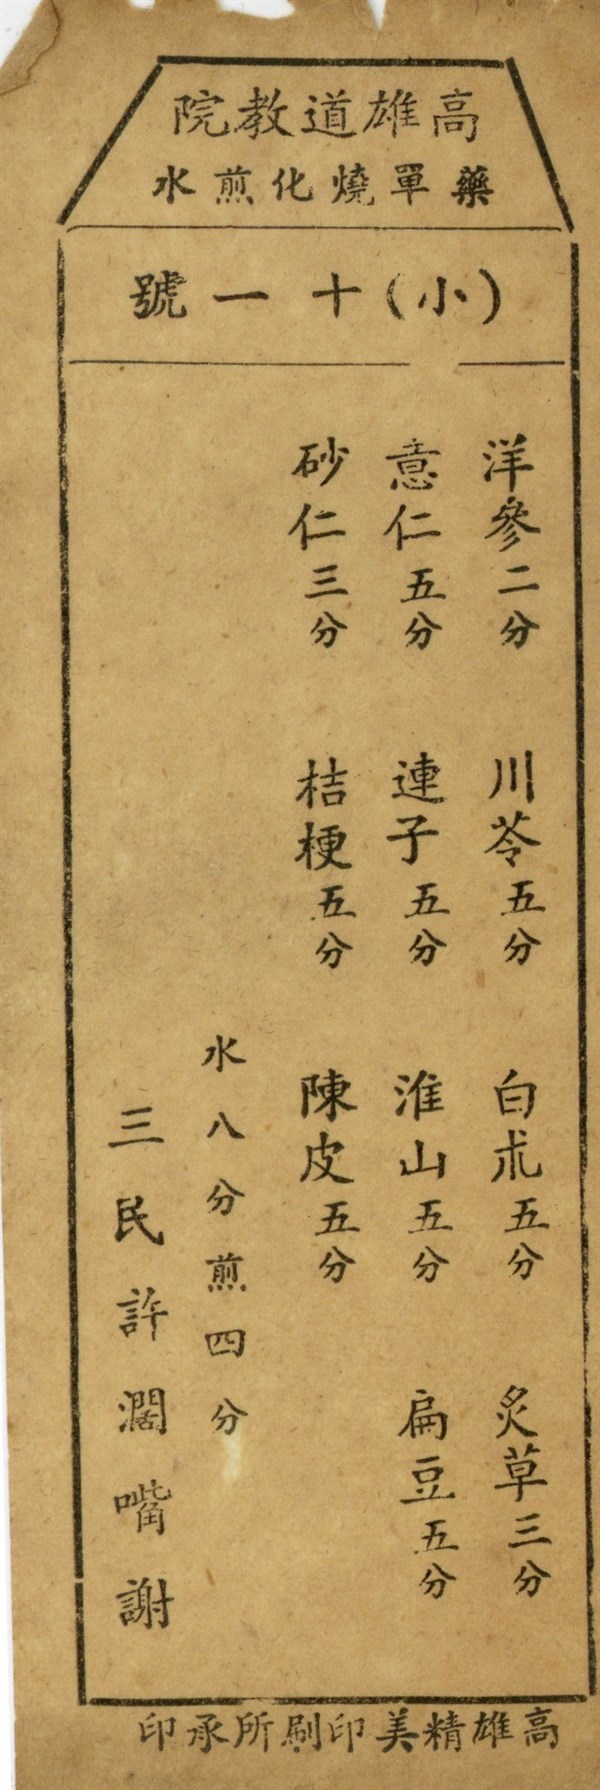 高雄道教院
藥單燒化煎水
（小）十一號
洋參二分 川苓五分 白朮五分 炙草三分
意仁五分 連子五分 淮山五分 扁豆五分
砂仁三分 桔梗五分 陳皮五分
水八分煎四分
三民許濶嘴謝
高雄精美印刷所承印